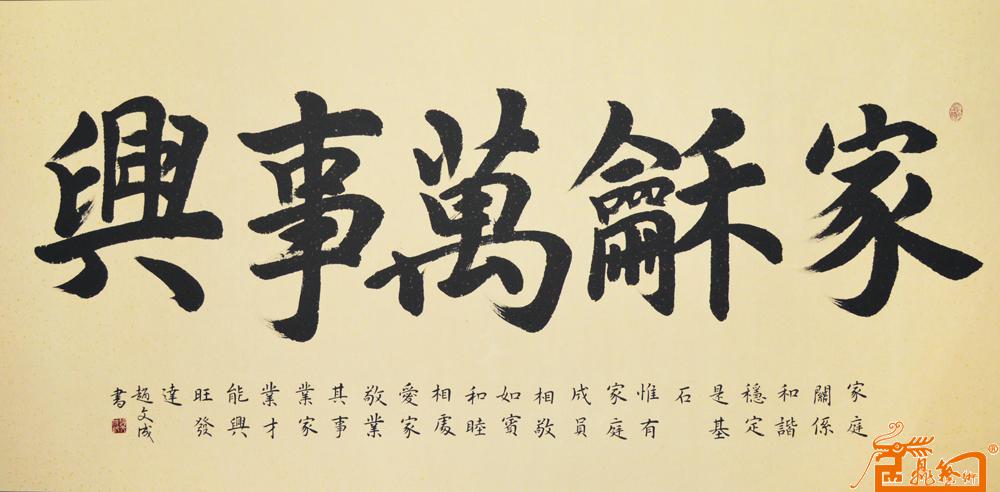 家龢萬事興
家庭
關係
和諧
穩定
是基
石
惟有
家庭
成員
相敬
如賓
和睦
相處
愛家
敬業
其事
業家
業才
能興
旺發
達
趙文成
書